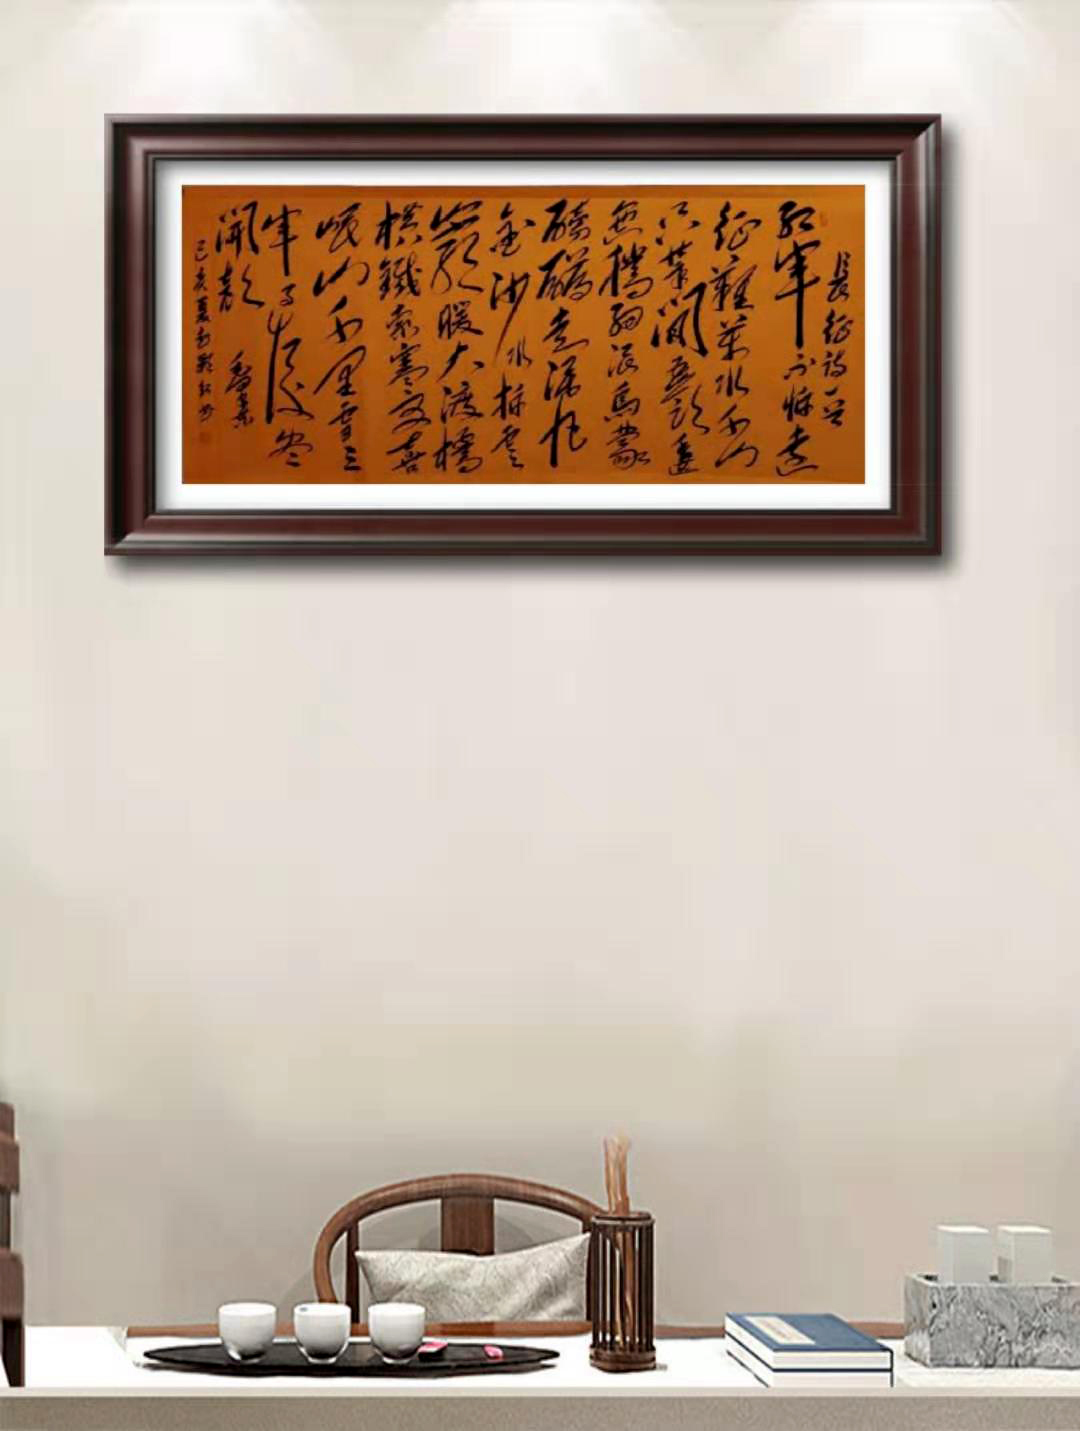 長征詩一首
紅軍不怕遠
征難萬水千山
只等閑五嶺逶
迤騰細浪烏蒙
磅礴走泥丸
金沙水拍雲
崖暖大渡橋
橫鐵索寒更喜
岷山千里雪三
軍過後盡
開顏
己亥夏